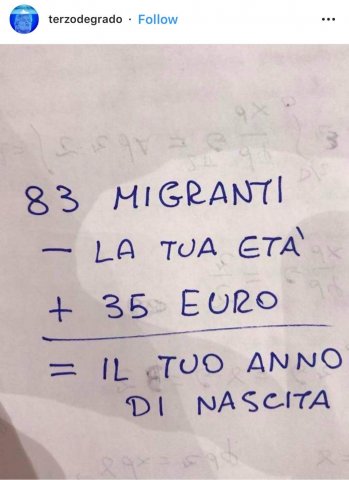 terzodegrado · Follow
83 MIGRANTI
- LA TUA ETÀ
+ 35 EURO
= IL TUO ANNO
DI NASCITA